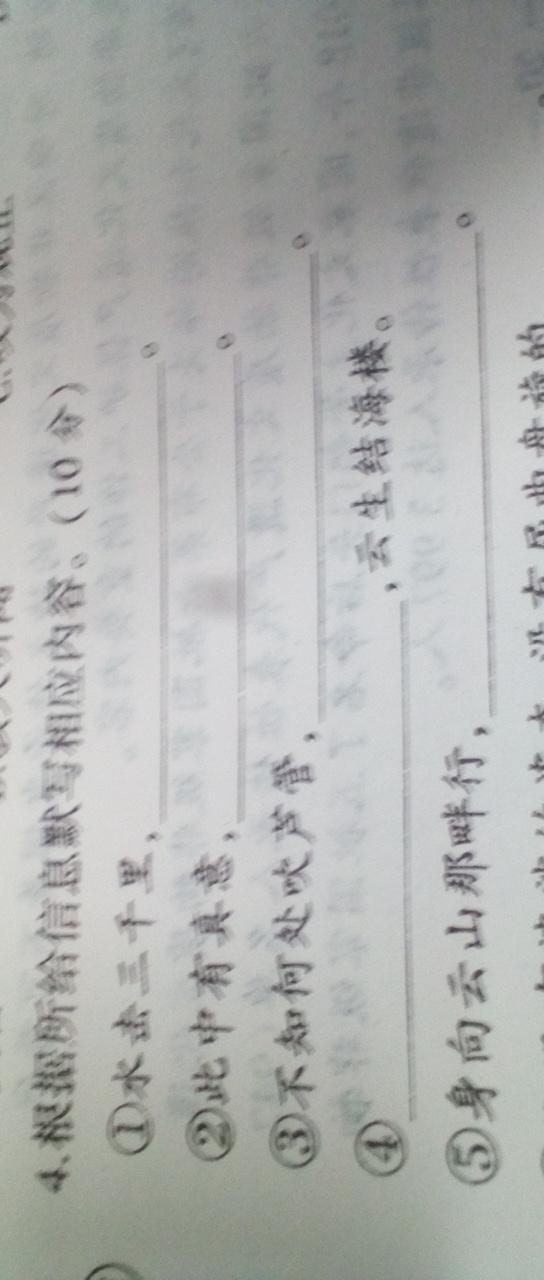 4.根据所给信息默写相应内容。(10分)
①水击三千里，。
②此中有真意，。
③不知何处吹芦管，。
④，云生结海楼。
⑤身向云山那畔行，。